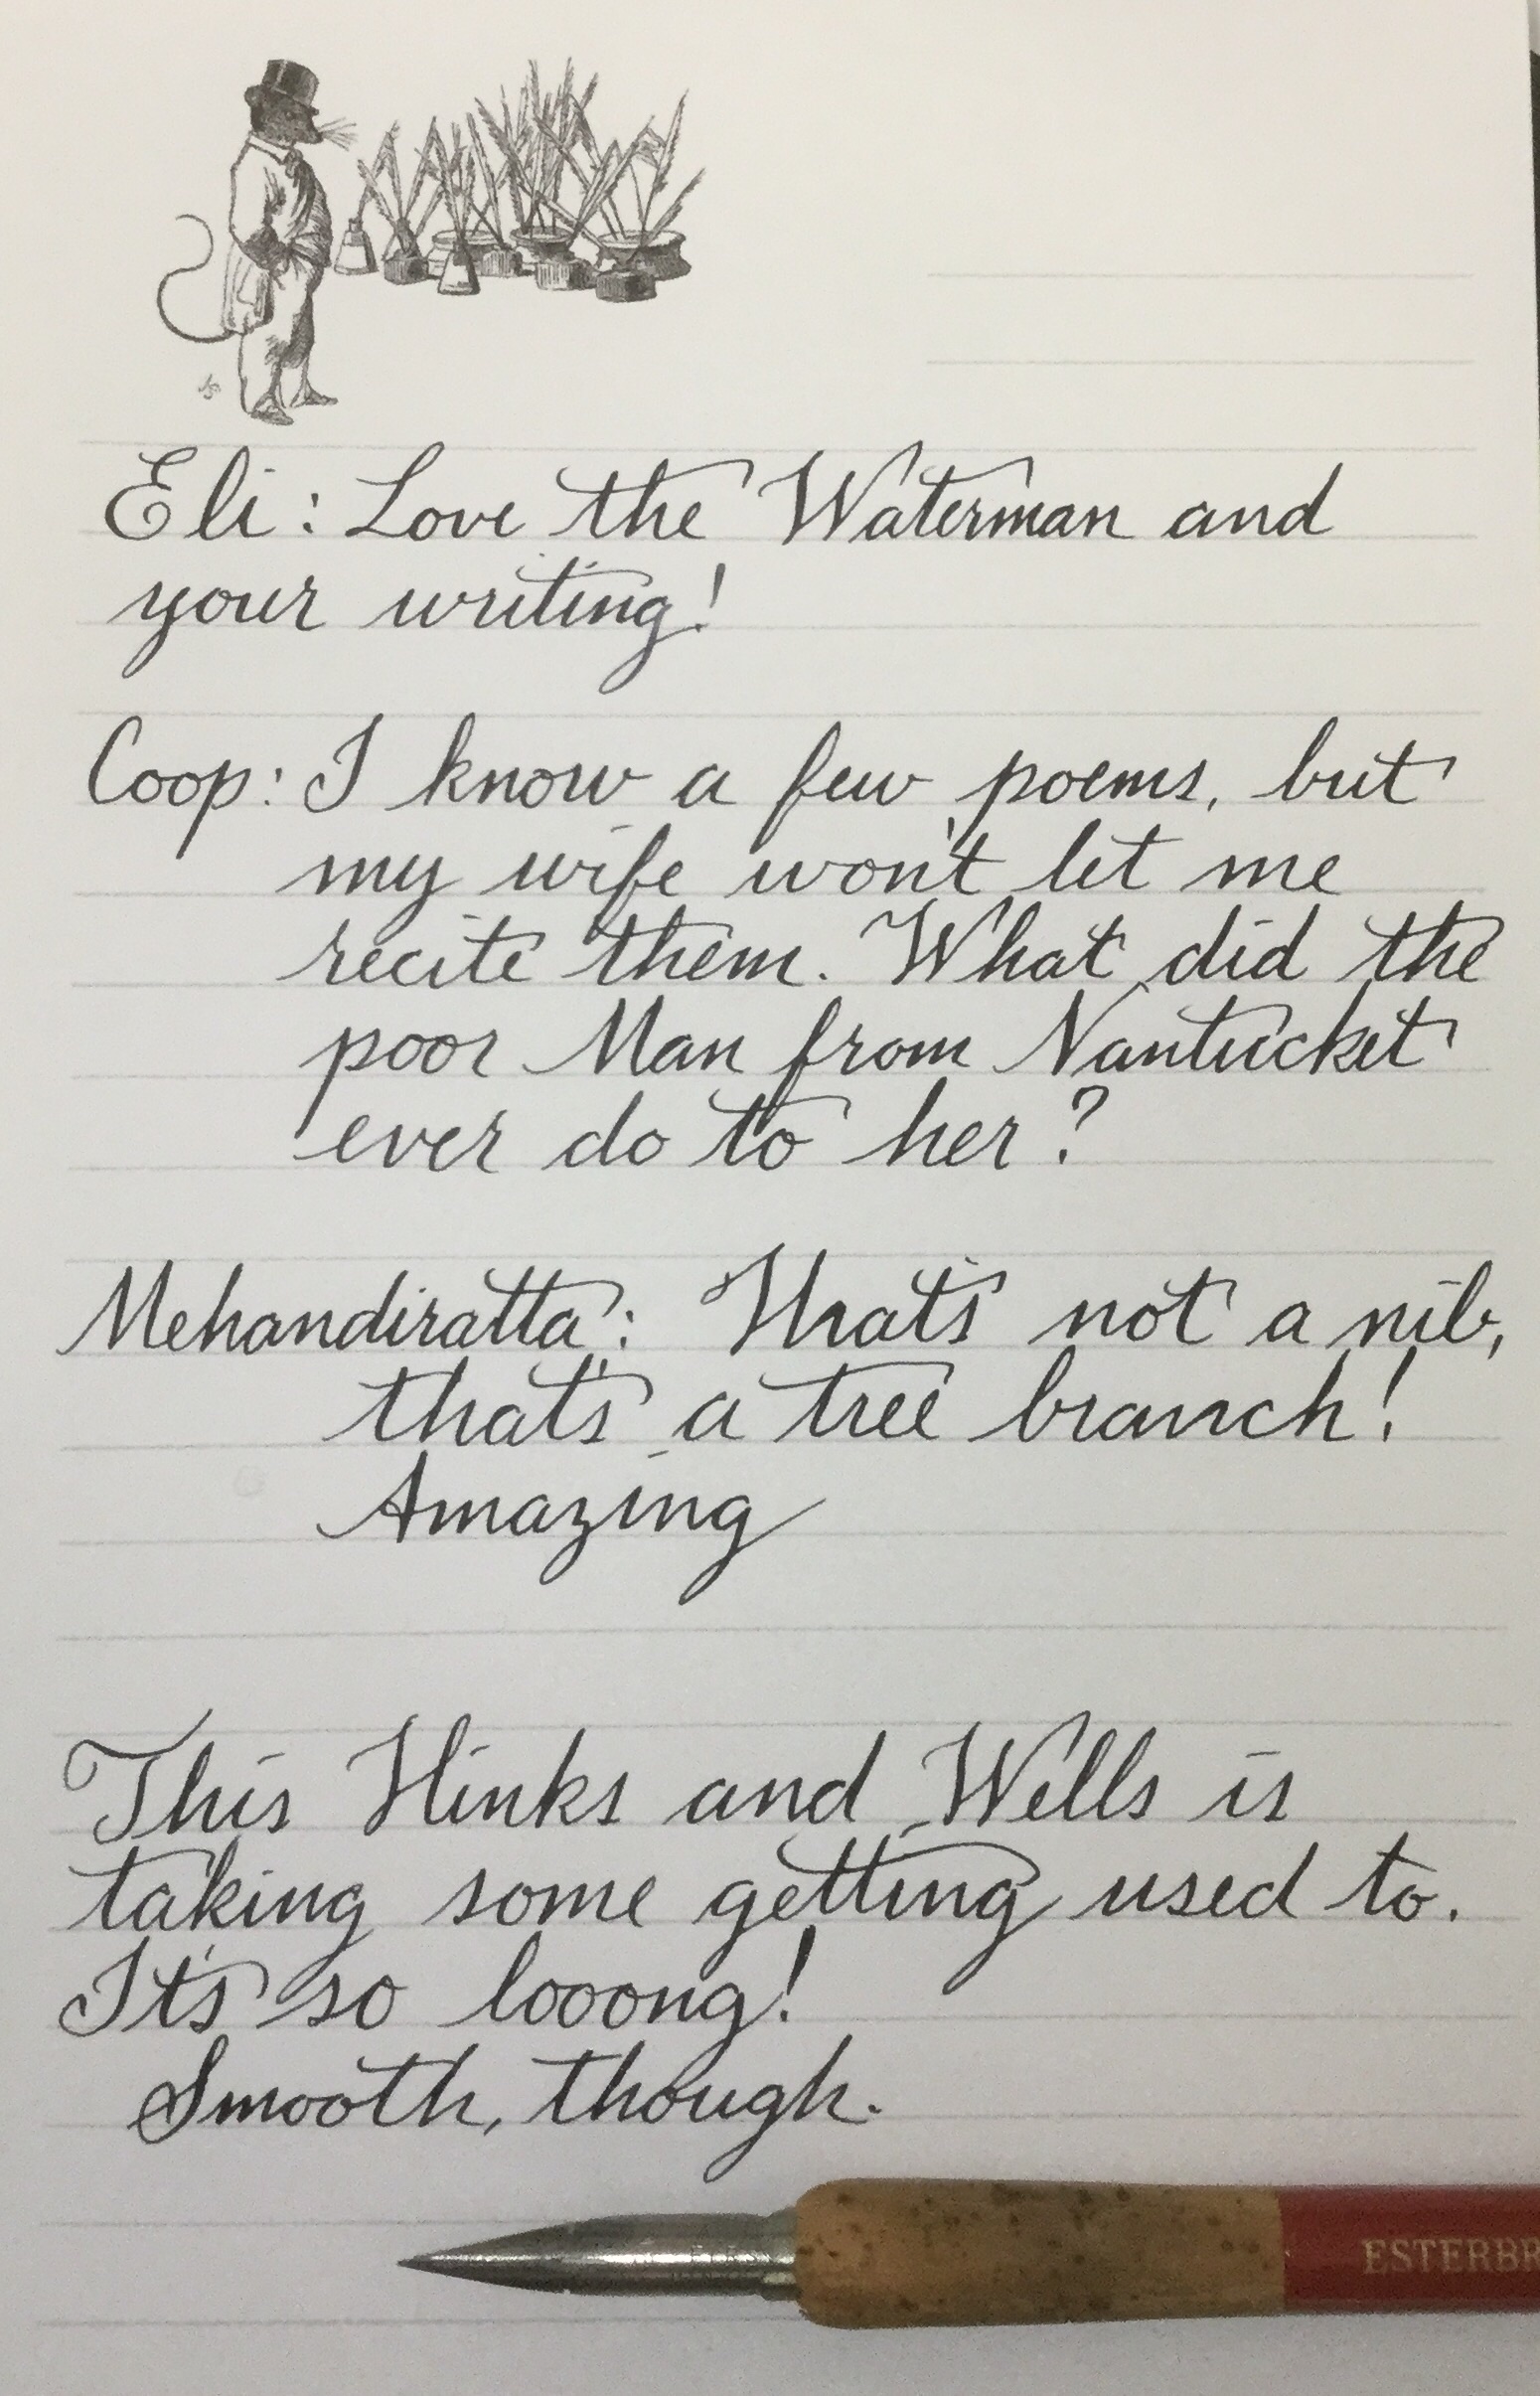 Eli: Love the Waterman and
your writing!
Coop: I know a few poems, but
my wife won't let me
recite them. What did the
poor Man from Nantucket
ever do to her?
Mehandiratta: That's not a nib,
that's a tree branch!
Amazing
This Hinks and Wells is
taking some getting used to.
It's so looong!
Smooth, though.
ESTERBR